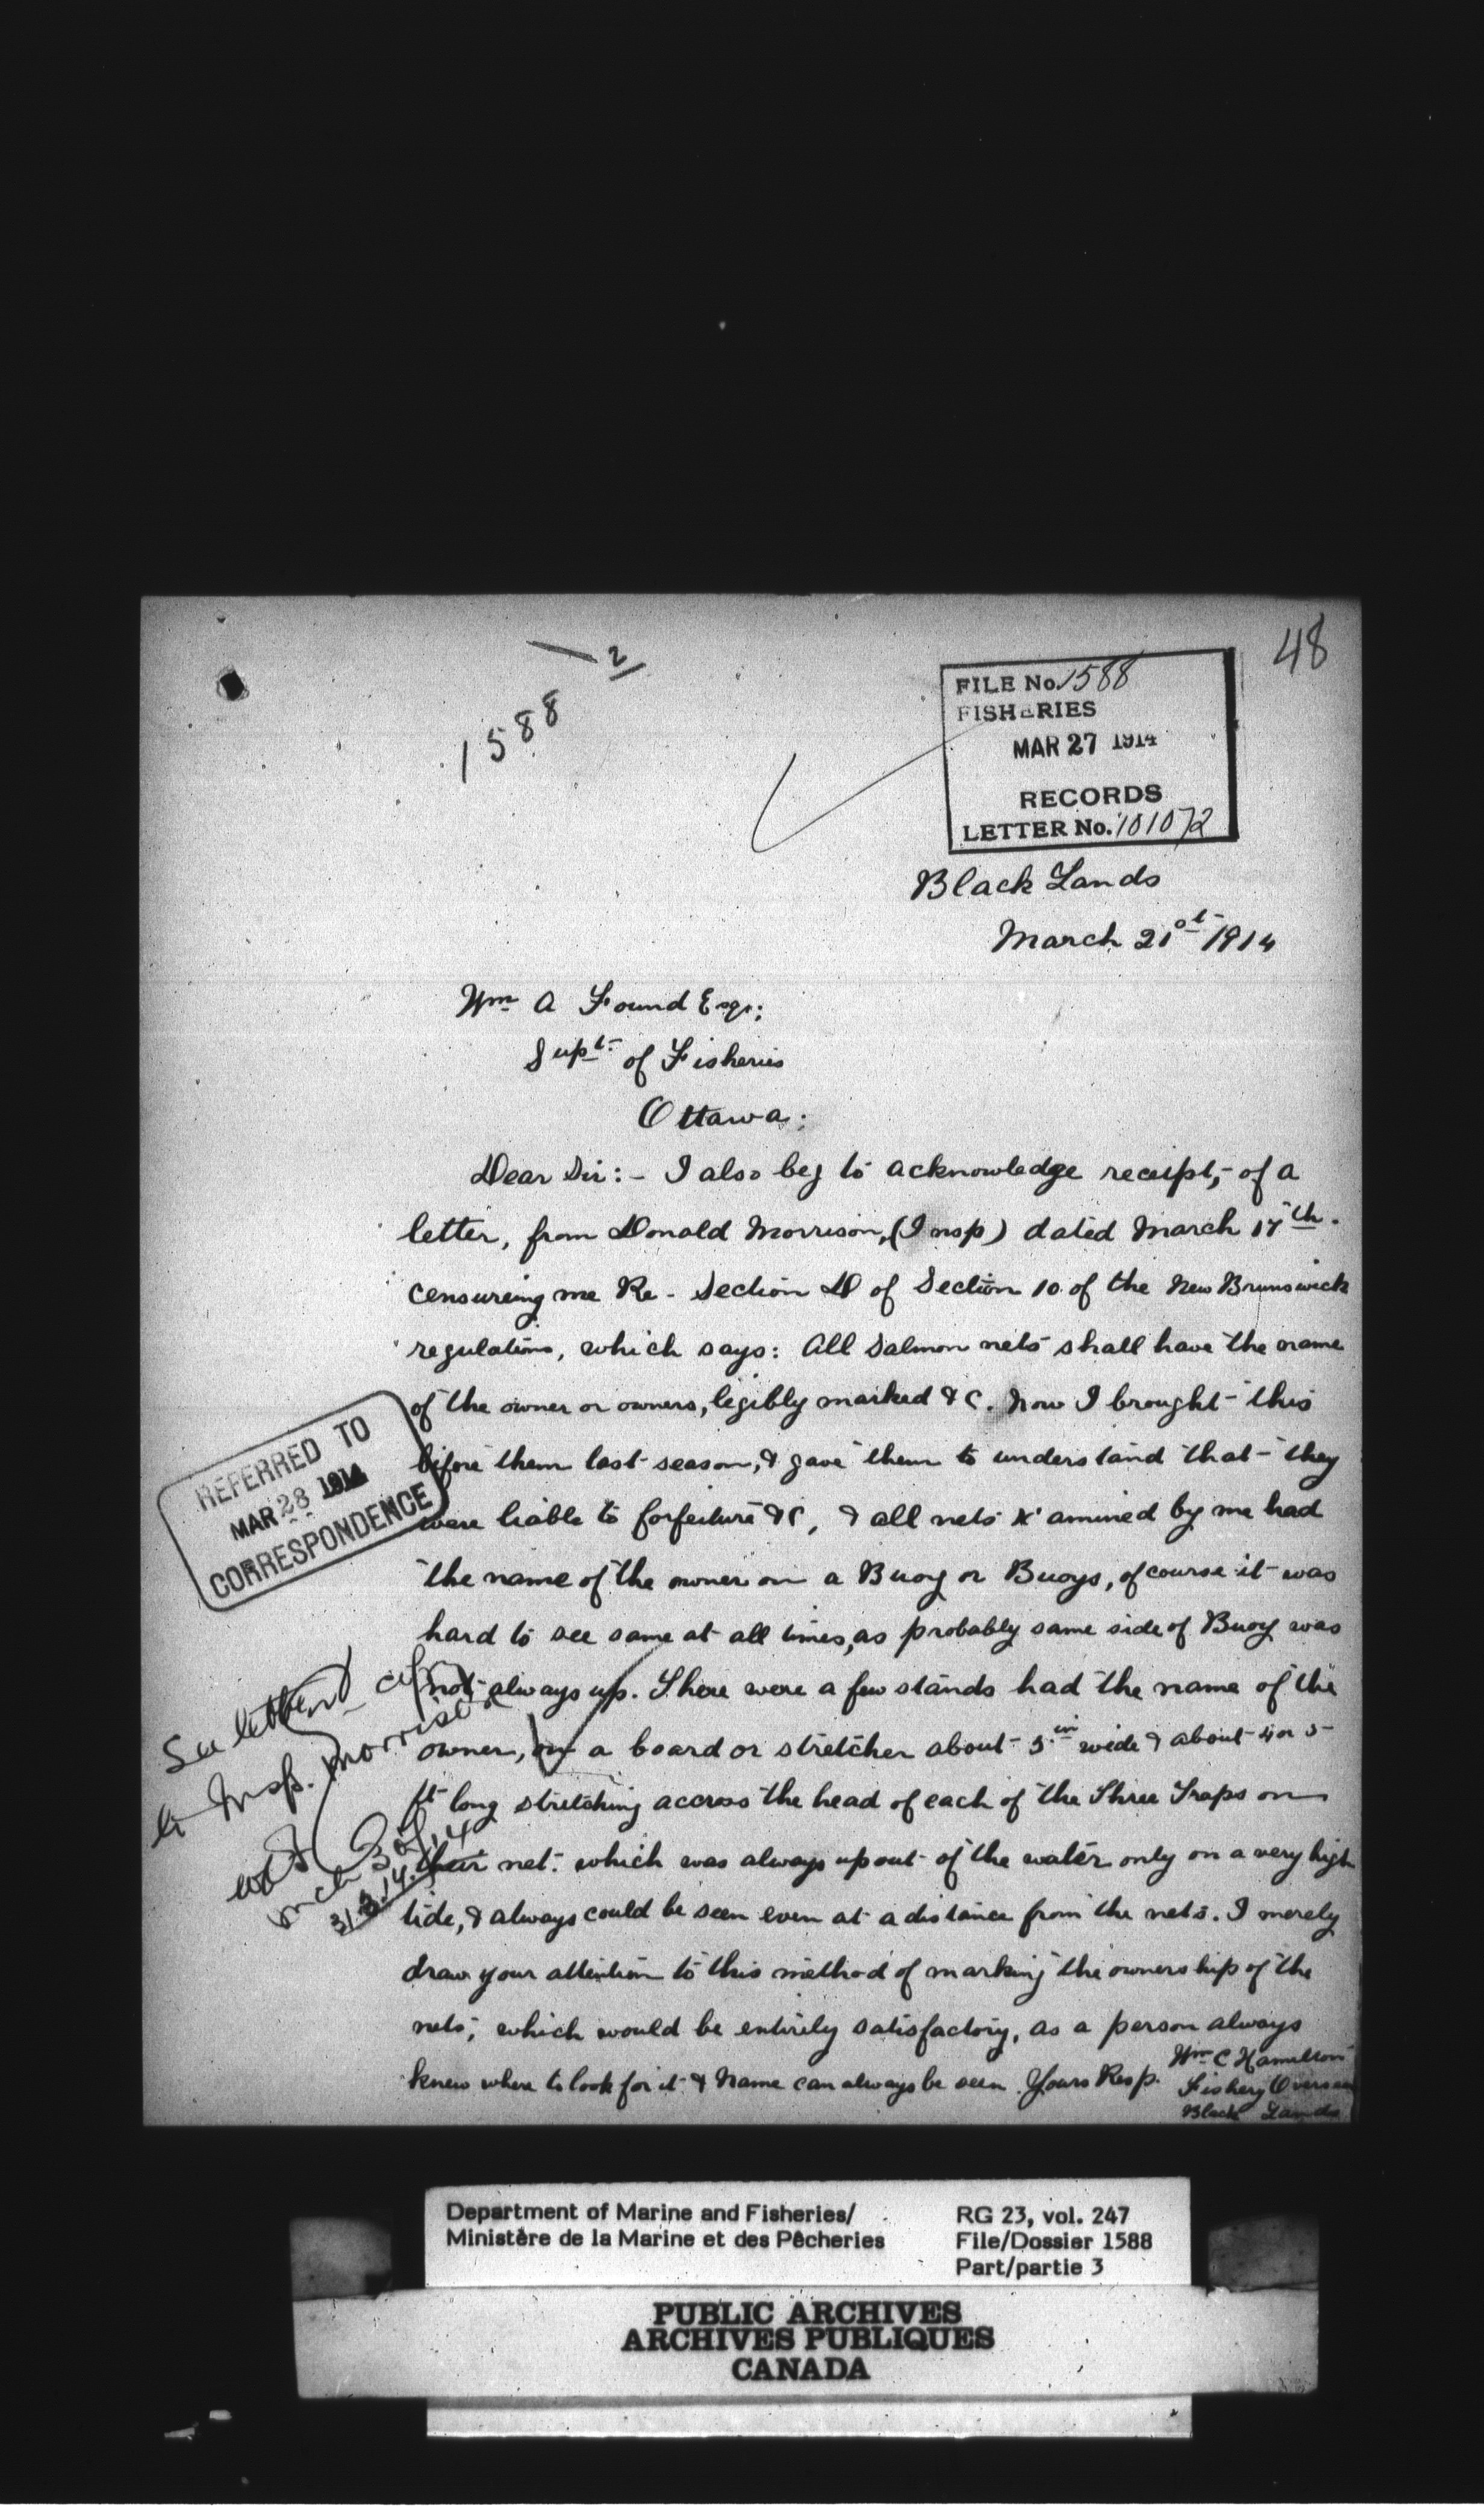 48
2
1588
FILE No. 1588
FISHERIES
MAR 27 1914
RECORDS
LETTER No. 101072
Black Lands
March 21st 1914
Wm A Found Esqr;
Supt. of Fisheries
Ottawa;
Dear Sir:- I also beg to acknowledge receipt, of a
letter, from Donald Morrison, (Insp) dated March 17th.
censureing me Re - Section D of Section 10 of the New Brunswick
regulations, which says: All Salmon nets shall have the name
of the owner or owners, legibly marked &C. Now I brought this
before them last season, & gave them to understand that they
were liable to forfeiture &C, & all nets X'amined by me had
the name of the owner on a Buoy or Buoys, of course it was
hard to see same at all times, as probably same side of Buoy was
not always up. There were a few stands had the name of the
owner, on a board or stretcher about 5in wide & about 4 or 5
ft long stretching accross the head of each of the Three Traps on
their net. which was always up out of the water only on a very high
tide, & always could be seen even at a distance from the nets. I merely
draw your attention to this method of marking the ownership of the
nets; which would be entirely satisfactory, as a person always
knew where to look for it & Name can always be seen. Yours Resp.
Wm C Hamilton
Fishery Overseer
Black Lands
REFERRED TO
MAR 28 1914
CORRESPONDENCE
See letter
to Insp. Morrison
31.3.14.
Department of Marine and Fisheries/
Ministère de la Marine et des Pêcheries
RG 23, vol. 247
File/Dossier 1588
Part/partie 3
PUBLIC ARCHIVES
ARCHIVES PUBLIQUES
CANADA